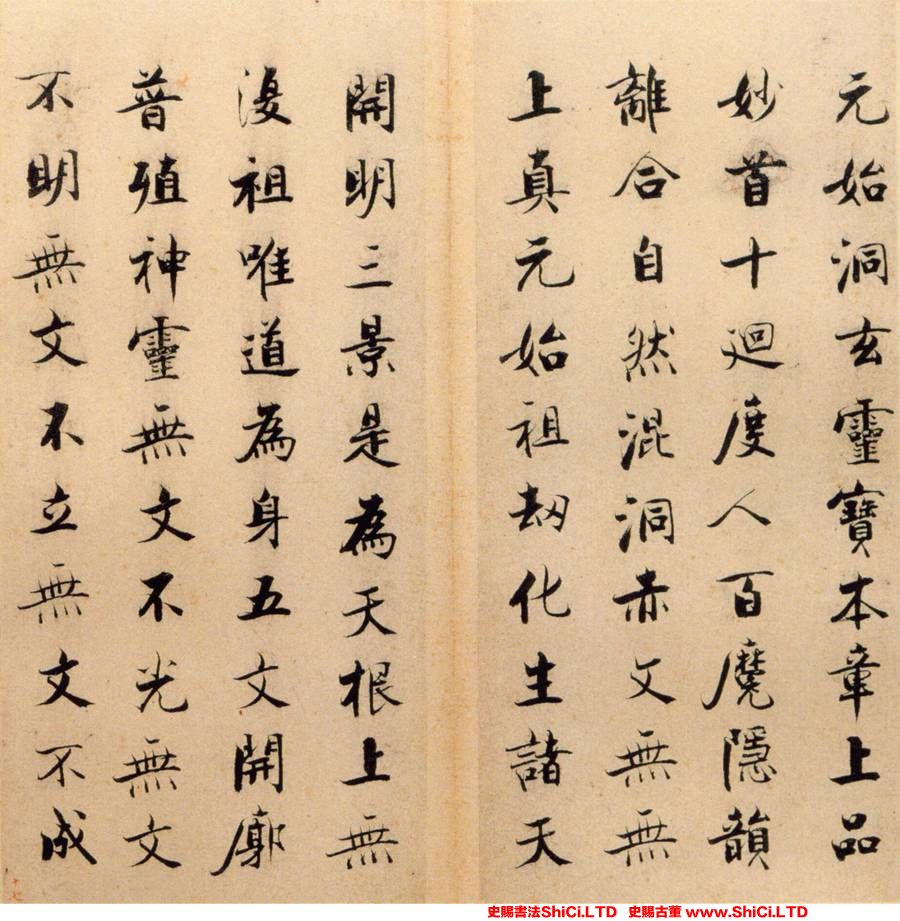 元始洞玄靈寶本章上品
妙首十廻度人百魔隱韻
離合自然混洞赤文無無
上真元始祖劫化生諸天
開明三景是為天根上無
復祖唯道為身五文開廓
普殖神靈無文不光無文
不明無文不立無文不成
十七
史賜書法ShiCi.LTD 史賜古董 www.ShiCi.LTD